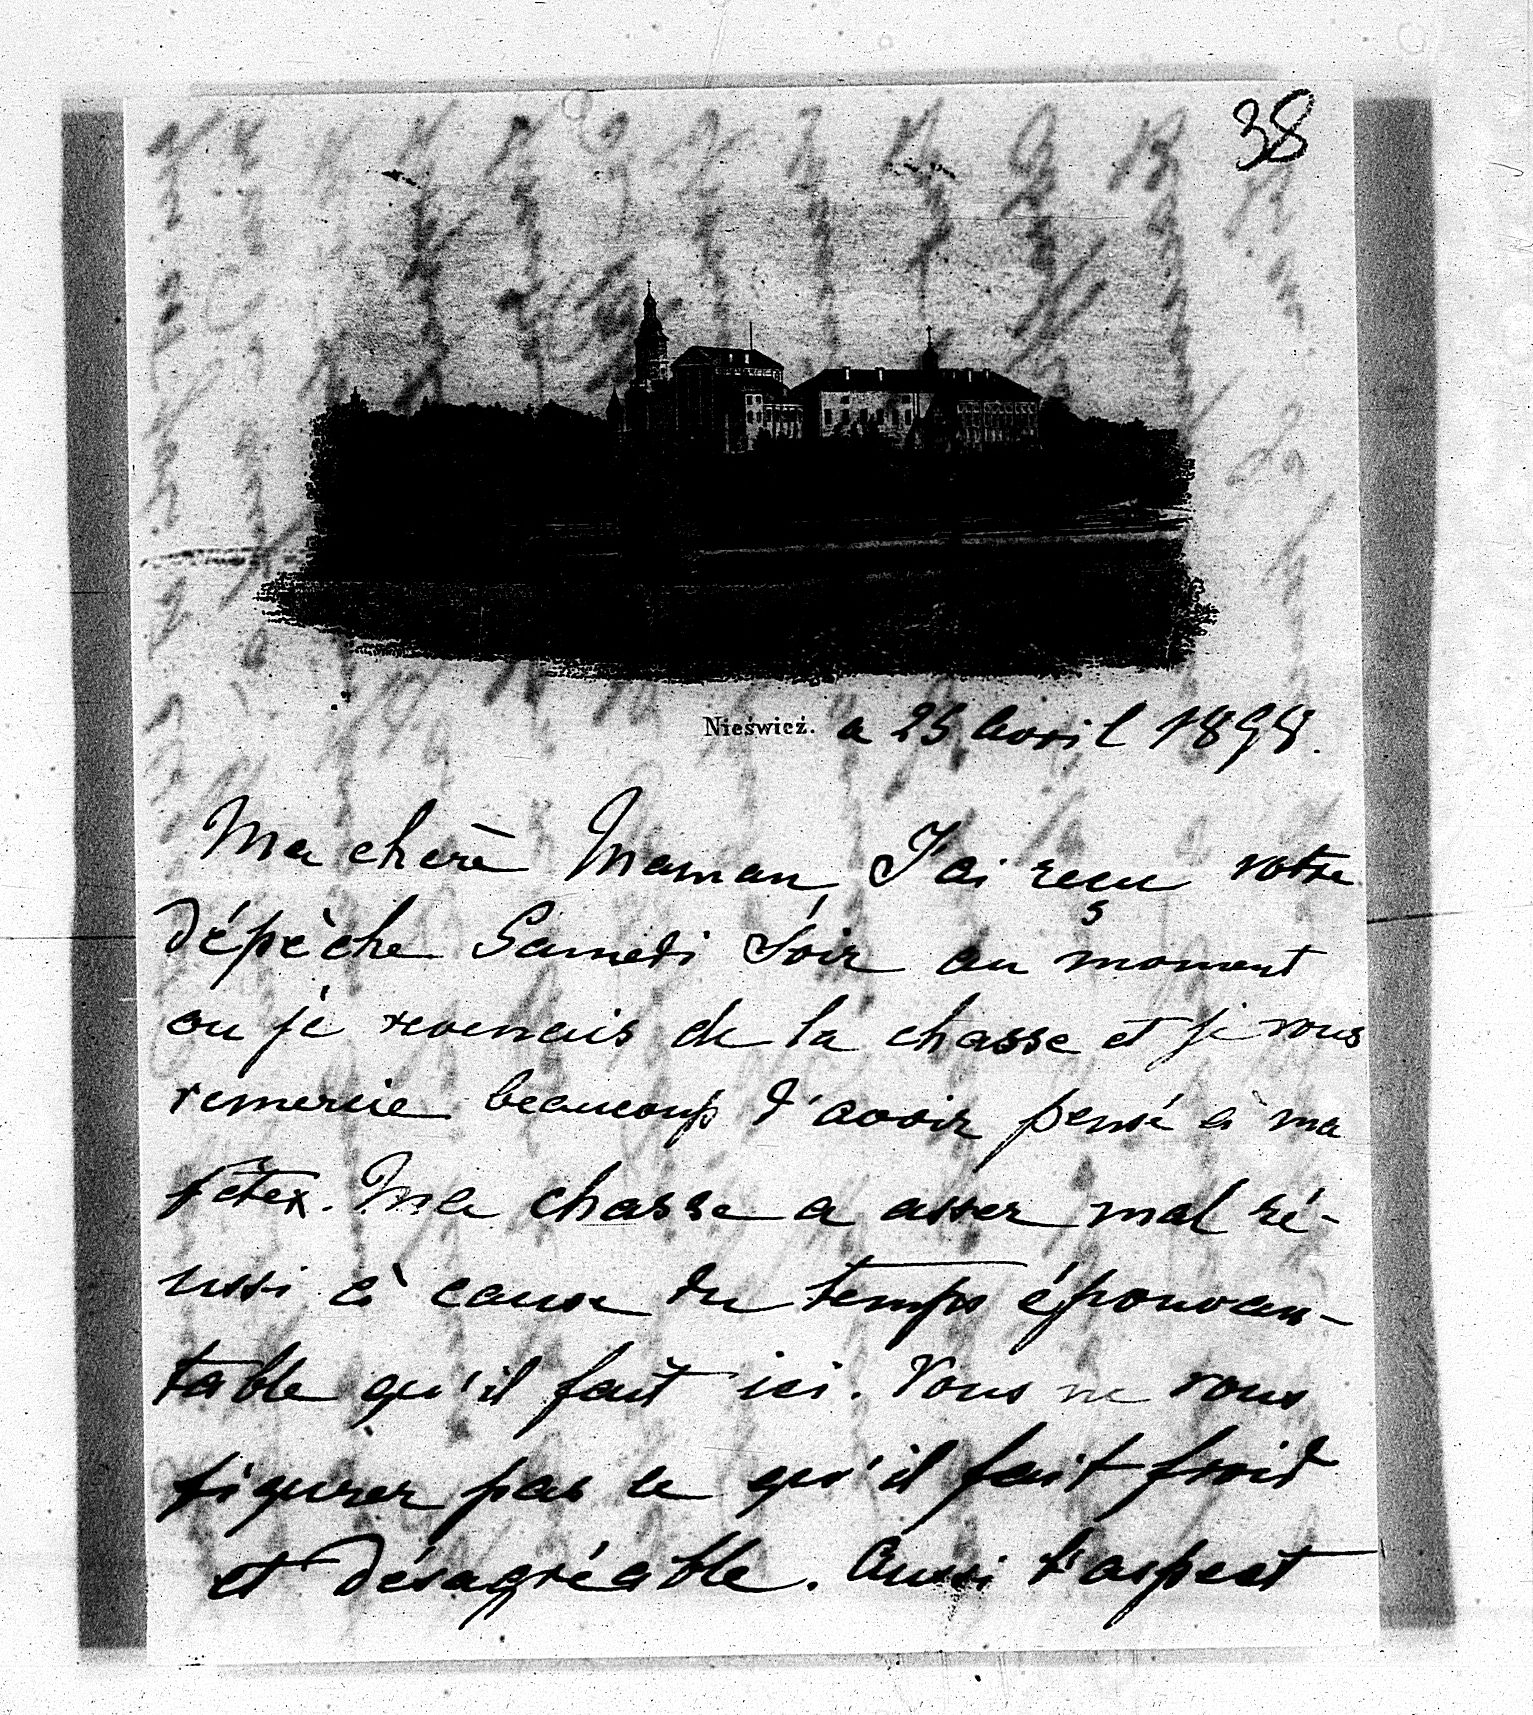 38
Nieśwież. a 25 Avril 1898.
Ma chère Maman, J'ai reçu votre
dépèche Samedi Soir au moment
ou je revenais de la chasse et je vous
remercie beaucoup d'avoir pensé à ma
fête. Ma chasse a assez mal ré-
ussi à cause du temps épouvan-
table qu'il fait ici. Vous ne vous
figurez pas ce qu'il fait froid
et désagréable. Aussi l'aspect